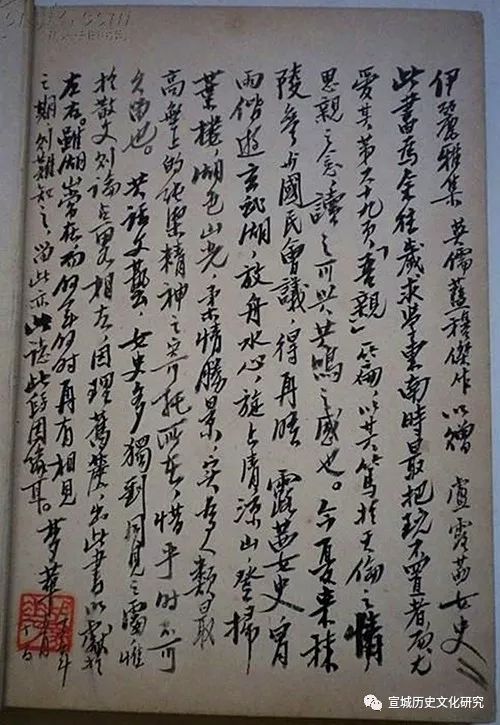 伊麗雅集 英儒藍穆傑作 以贈 露茜女史
此書為余往歲求學東南時最把玩不置者,而尤
愛其第六十九頁「親」一篇,以其篤於天倫之情
思親之念,讀之可興共鳴之感也。今夏來秣
陵參與國民會議,得再晤 露茜女史,曾
兩偕遊玄武湖,放舟水心,旋上清涼山,登掃
葉樓,湖色山光,柔情勝景,實吾人類最
高無上的純潔精神之寄托所在,惜乎時不可
久留也。共話文藝,女史多獨到洞見之處,惟
於散文則論畧相左,因理舊篋,出此書以獻於
左右。雖湖山常在,而何年何時再有相見
之期則難知之,留此亦以誌此段因緣耳。夢華
宣城历史文化研究